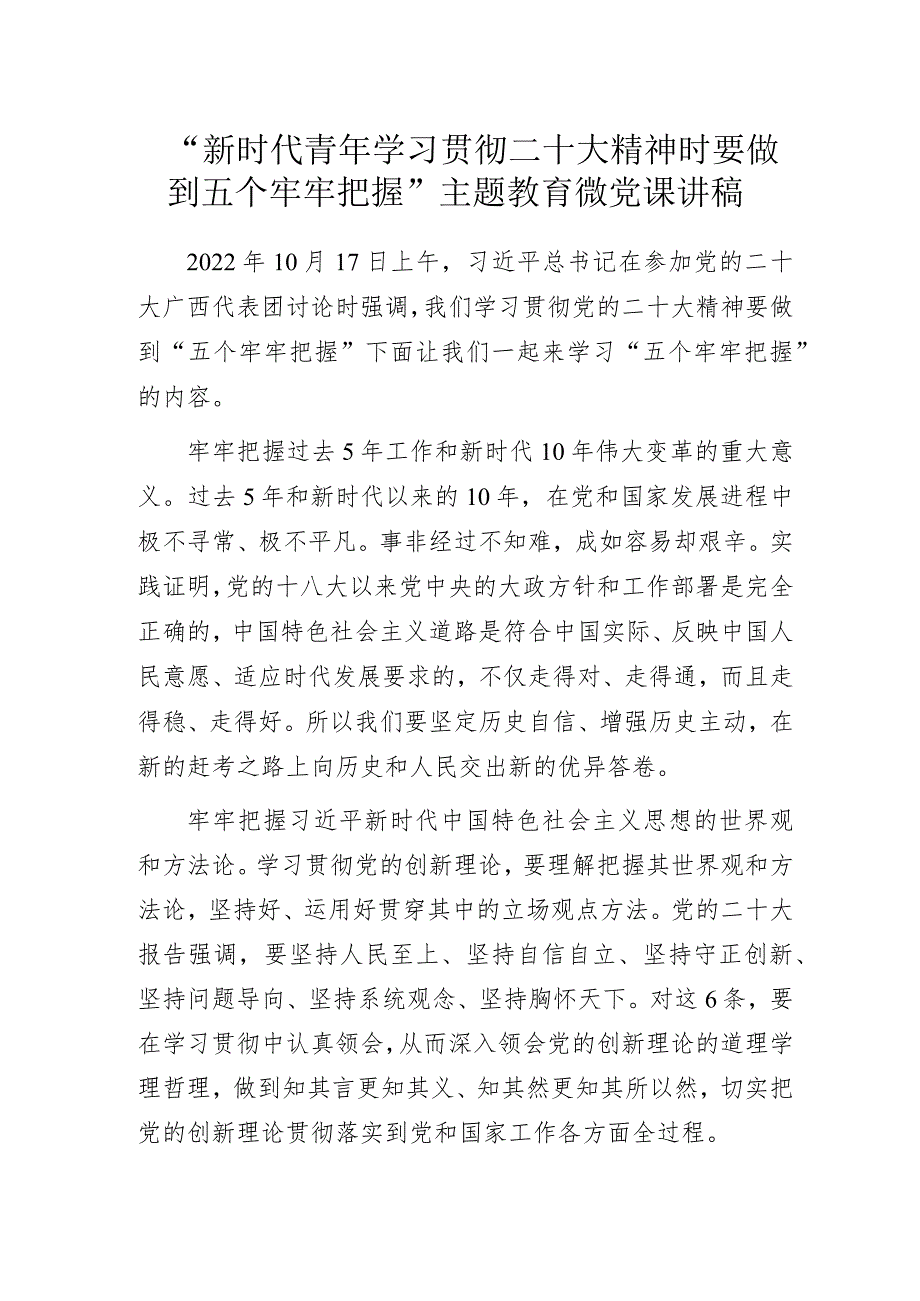 “新时代青年学习贯彻二十大精神时要做
到五个牢牢把握”主题教育微党课讲稿
2022 年 10 月 17 日上午，习近平总书记在参加党的二十
大广西代表团讨论时强调，我们学习贯彻党的二十大精神要做
到“五个牢牢把握”下面让我们一起来学习“五个牢牢把握”
的内容。
牢牢把握过去 5 年工作和新时代 10 年伟大变革的重大意
义。过去 5 年和新时代以来的 10 年，在党和国家发展进程中
极不寻常、极不平凡。事非经过不知难，成如容易却艰辛。实
践证明，党的十八大以来党中央的大政方针和工作部署是完全
正确的，中国特色社会主义道路是符合中国实际、反映中国人
民意愿、适应时代发展要求的，不仅走得对、走得通，而且走
得稳、走得好。所以我们要坚定历史自信、增强历史主动，在
新的赶考之路上向历史和人民交出新的优异答卷。
牢牢把握习近平新时代中国特色社会主义思想的世界观
和方法论。学习贯彻党的创新理论，要理解把握其世界观和方
法论，坚持好、运用好贯穿其中的立场观点方法。党的二十大
报告强调，要坚持人民至上、坚持自信自立、坚持守正创新、
坚持问题导向、坚持系统观念、坚持胸怀天下。对这 6 条，要
在学习贯彻中认真领会，从而深入领会党的创新理论的道理学
理哲理，做到知其言更知其义、知其然更知其所以然，切实把
党的创新理论贯彻落实到党和国家工作各方面全过程。